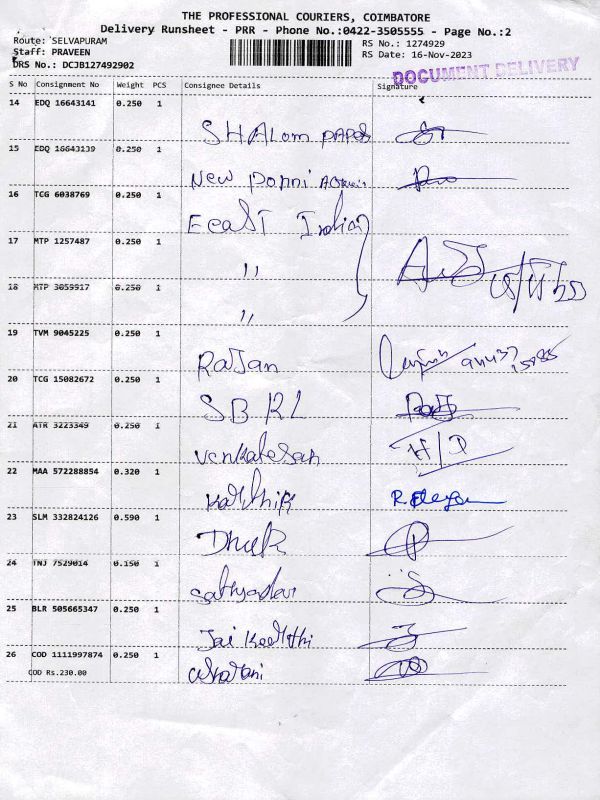 THE PROFESSIONAL COURIERS, COIMBATORE
Delivery Runsheet - PRR - Phone No.:0422-3505555 - Page No.:2
Route: SELVAPURAM
RS No.: 1274929
Staff: PRAVEEN
RS Date: 16-Nov-2023
DRS No.: DCJB127492902
DOCUMENT DELIVERY
S No Consignment No Weight PCS Consignee Details Signature
14 EDQ 16643141 0.250 1
SHALOM PAPER
15 EDQ 16643239 0.250 1
New Ponni
16 TCG 6038769 0.250 1
East Indian
17 MTP 1257487 0.250 1
"
18 MTP 3059917 0.250 1
"
19 TVM 9045225 0.250 1
Rajan
20 TCG 15082672 0.250 1
SBRL
21 ATR 3223349 0.250 1
Venkatesan H/P
22 MAA 572288854 0.320 1
Karthik
23 SLM 332824126 0.590 1
24 TNJ 7529014 0.150 1
Sathyadevi
25 BLR 505665347 0.250 1
Jai Keerthi
26 COD 1111997874 0.250 1
COD Rs.230.00